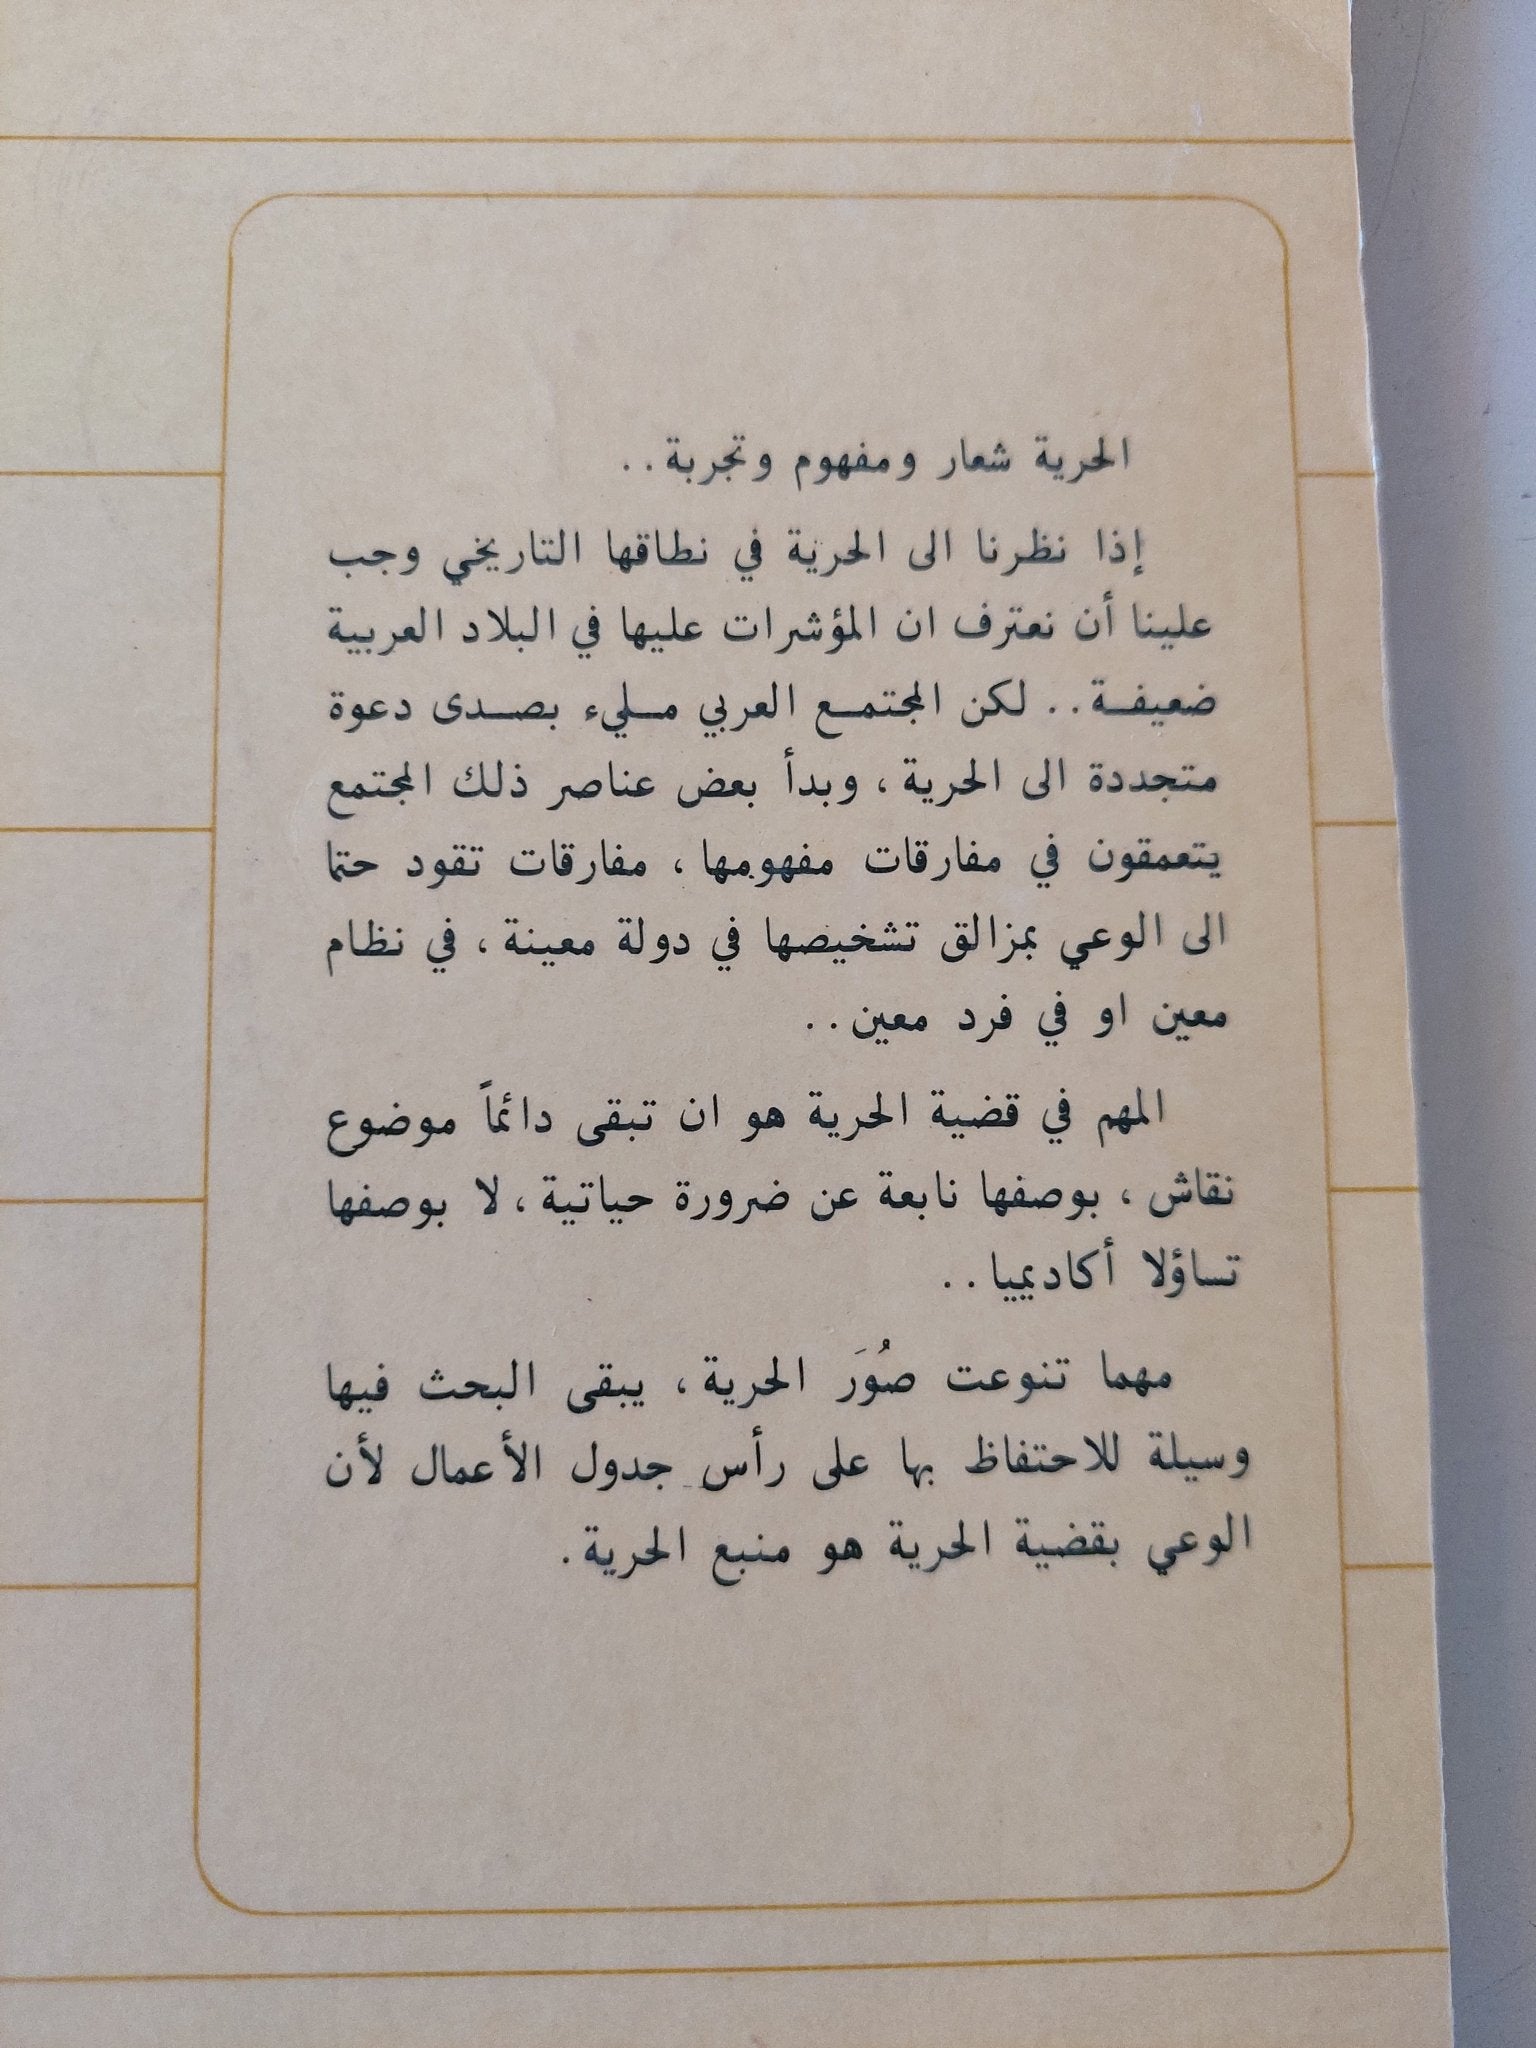 الحرية شعار ومفهوم وتجربة..
إذا نظرنا الى الحرية في نطاقها التاريخي وجب
علينا أن نعترف ان المؤشرات عليها في البلاد العربية
ضعيفة.. لكن المجتمع العربي مليء بصدى دعوة
متجددة الى الحرية، وبدأ بعض عناصر ذلك المجتمع
يتعمقون في مفارقات مفهومها، مفارقات تقود حتما
الى الوعي بمزالق تشخيصها في دولة معينة، في نظام
معين او في فرد معين..
المهم في قضية الحرية هو ان تبقى دائماً موضوع
نقاش، بوصفها نابعة عن ضرورة حياتية، لا بوصفها
تساؤلا أكاديميا..
مهما تنوعت صُوَر الحرية، يبقى البحث فيها
وسيلة للاحتفاظ بها على رأس جدول الأعمال لأن
الوعي بقضية الحرية هو منبع الحرية.